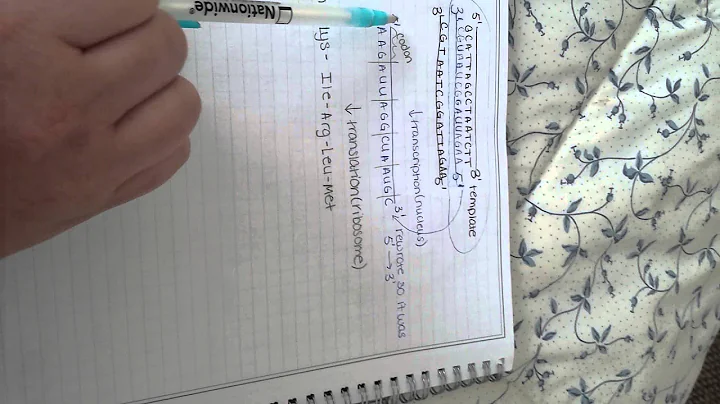 5' GCATTAGCCTAATCTT 3' template
3' CGUAAUCGGAUUAGAA 5'
3' CGTAATCGGATTAGAA 5'
↓transcription(nucleus)
codon
AAG|AUU|AGG|CUA|AUG|C 3' rewrote so it was
5' → 3'
↓translation(ribosome)
Lys- Ile-Arg-Leu-Met
Nationwide